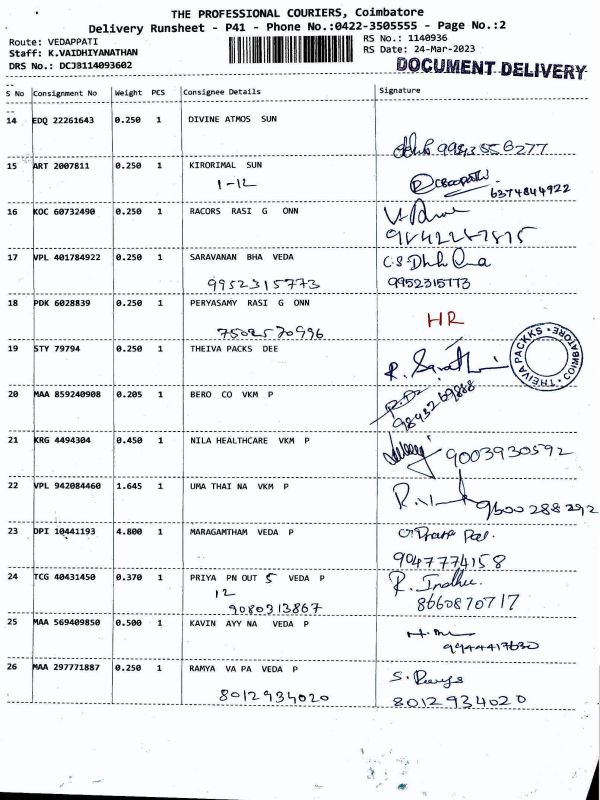 THE PROFESSIONAL COURIERS, Coimbatore
Delivery Runsheet - P41 - Phone No.:0422-3505555 - Page No.:2
Route: VEDAPPATI
Staff: K.VAIDHIYANATHAN
DRS No.: DCJB114093602
RS No.: 1140936
RS Date: 24-Mar-2023
DOCUMENT DELIVERY
S No Consignment No Weight PCS Consignee Details Signature
14 EDQ 22261643 0.250 1 DIVINE ATMOS SUN
9943556277
15 ART 2007811 0.250 1 KIRORIMAL SUN
1-12
6374844922
16 KOC 60732490 0.250 1 RACORS RASI G ONN
17 VPL 401784922 0.250 1 SARAVANAN BHA VEDA
9952315773 9952315773
18 PDK 6028839 0.250 1 PERYASAMY RASI G ONN HR
7502570996
19 STY 79794 0.250 1 THEIVA PACKS DEE
THEIVA PACKKS COIMBATORE
20 MAA 859240908 0.205 1 BERO CO VKM P
21 KRG 4494304 0.450 1 NILA HEALTHCARE VKM P
9003930592
22 VPL 942084460 1.645 1 UMA THAI NA VKM P
9600288292
23 DPI 10441193 4.800 1 MARAGAMTHAM VEDA P
9047774158
24 TCG 40431450 0.370 1 PRIYA PN OUT 5 VEDA P R. Indhu.
12 8660870717
9080213867
25 MAA 569409850 0.500 1 KAVIN AYY NA VEDA P
9944417630
26 MAA 297771887 0.250 1 RAMYA VA PA VEDA P
8012934020 8012934020